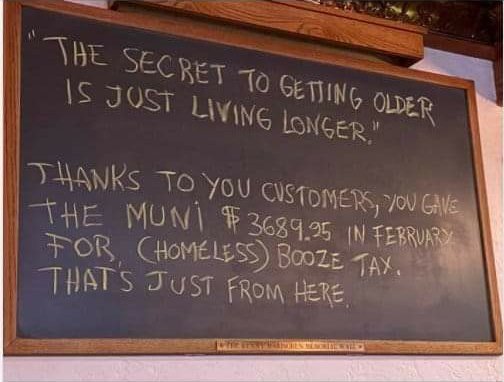 "THE SECRET TO GETTING OLDER
IS JUST LIVING LONGER."
THANKS TO YOU CUSTOMERS, YOU GAVE
THE MUNI $3689.95 IN FEBRUARY
FOR, (HOMELESS) BOOZE TAX.
THAT'S JUST FROM HERE.
THE KENNY MEMORIAL WALL